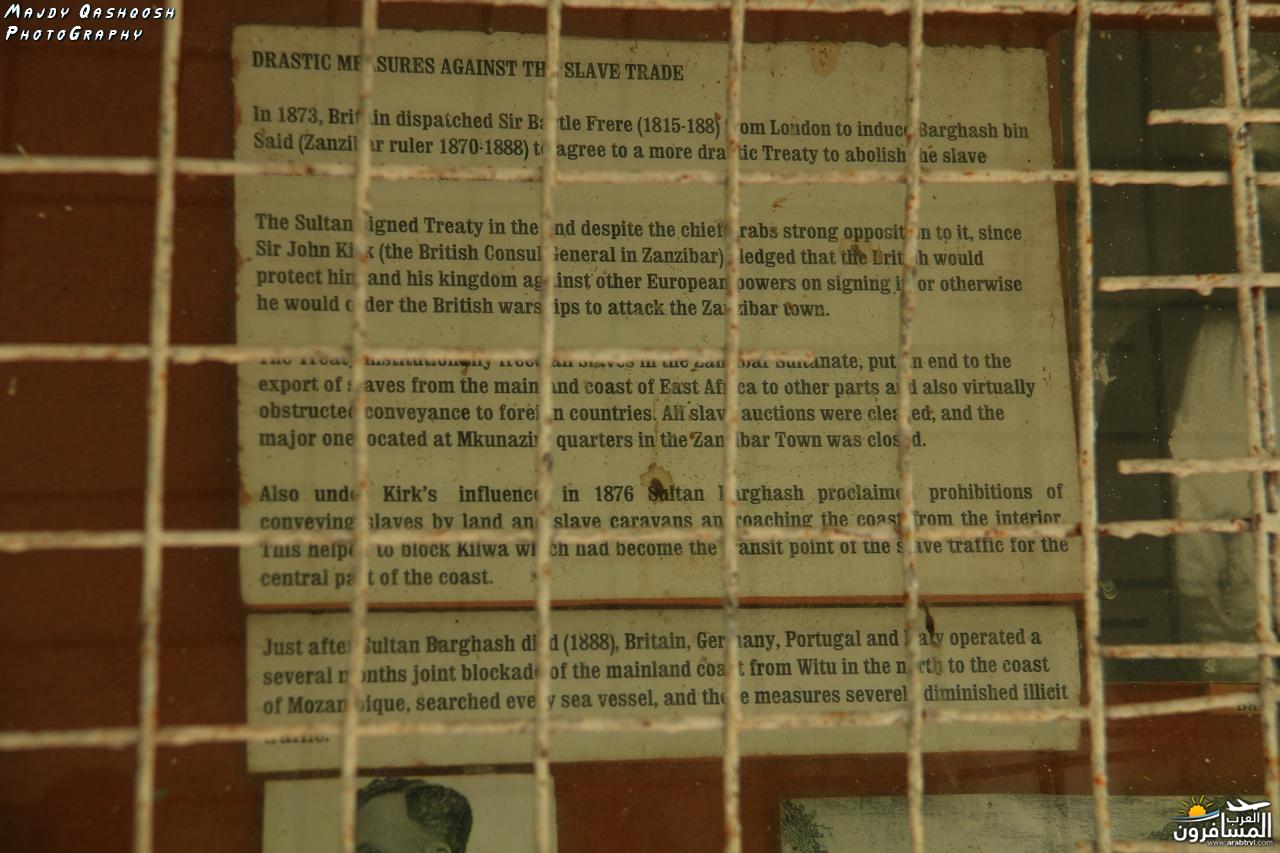 Majdy Qashqosh
Photography
DRASTIC MEASURES AGAINST THE SLAVE TRADE
In 1873, Britain dispatched Sir Bartle Frere (1815-188 from London to induce Barghash bin
Said (Zanzibar ruler 1870-1888) to agree to a more drastic Treaty to abolish the slave
The Sultan signed Treaty in the end despite the chief Arabs strong opposition to it, since
Sir John Kirk (the British Consul General in Zanzibar) pledged that the British would
protect him and his kingdom against other European powers on signing it or otherwise
he would order the British warships to attack the Zanzibar town.
The Treaty institutionally freed all slaves in the Zanzibar Sultanate, put an end to the
export of slaves from the mainland coast of East Africa to other parts and also virtually
obstructed conveyance to foreign countries. All slave auctions were cleared, and the
major one located at Mkunazini quarters in the Zanzibar Town was closed.
Also under Kirk's influence in 1876 Sultan Barghash proclaimed prohibitions of
conveying slaves by land and slave caravans approaching the coast from the interior.
This helped to block Kilwa which had become the transit point of the slave traffic for the
central part of the coast.
Just after Sultan Barghash died (1888), Britain, Germany, Portugal and Italy operated a
several months joint blockade of the mainland coast from Witu in the north to the coast
of Mozambique, searched every sea vessel, and these measures severely diminished illicit
traffic.
العرب
المسافرون
www.arabtrvl.com